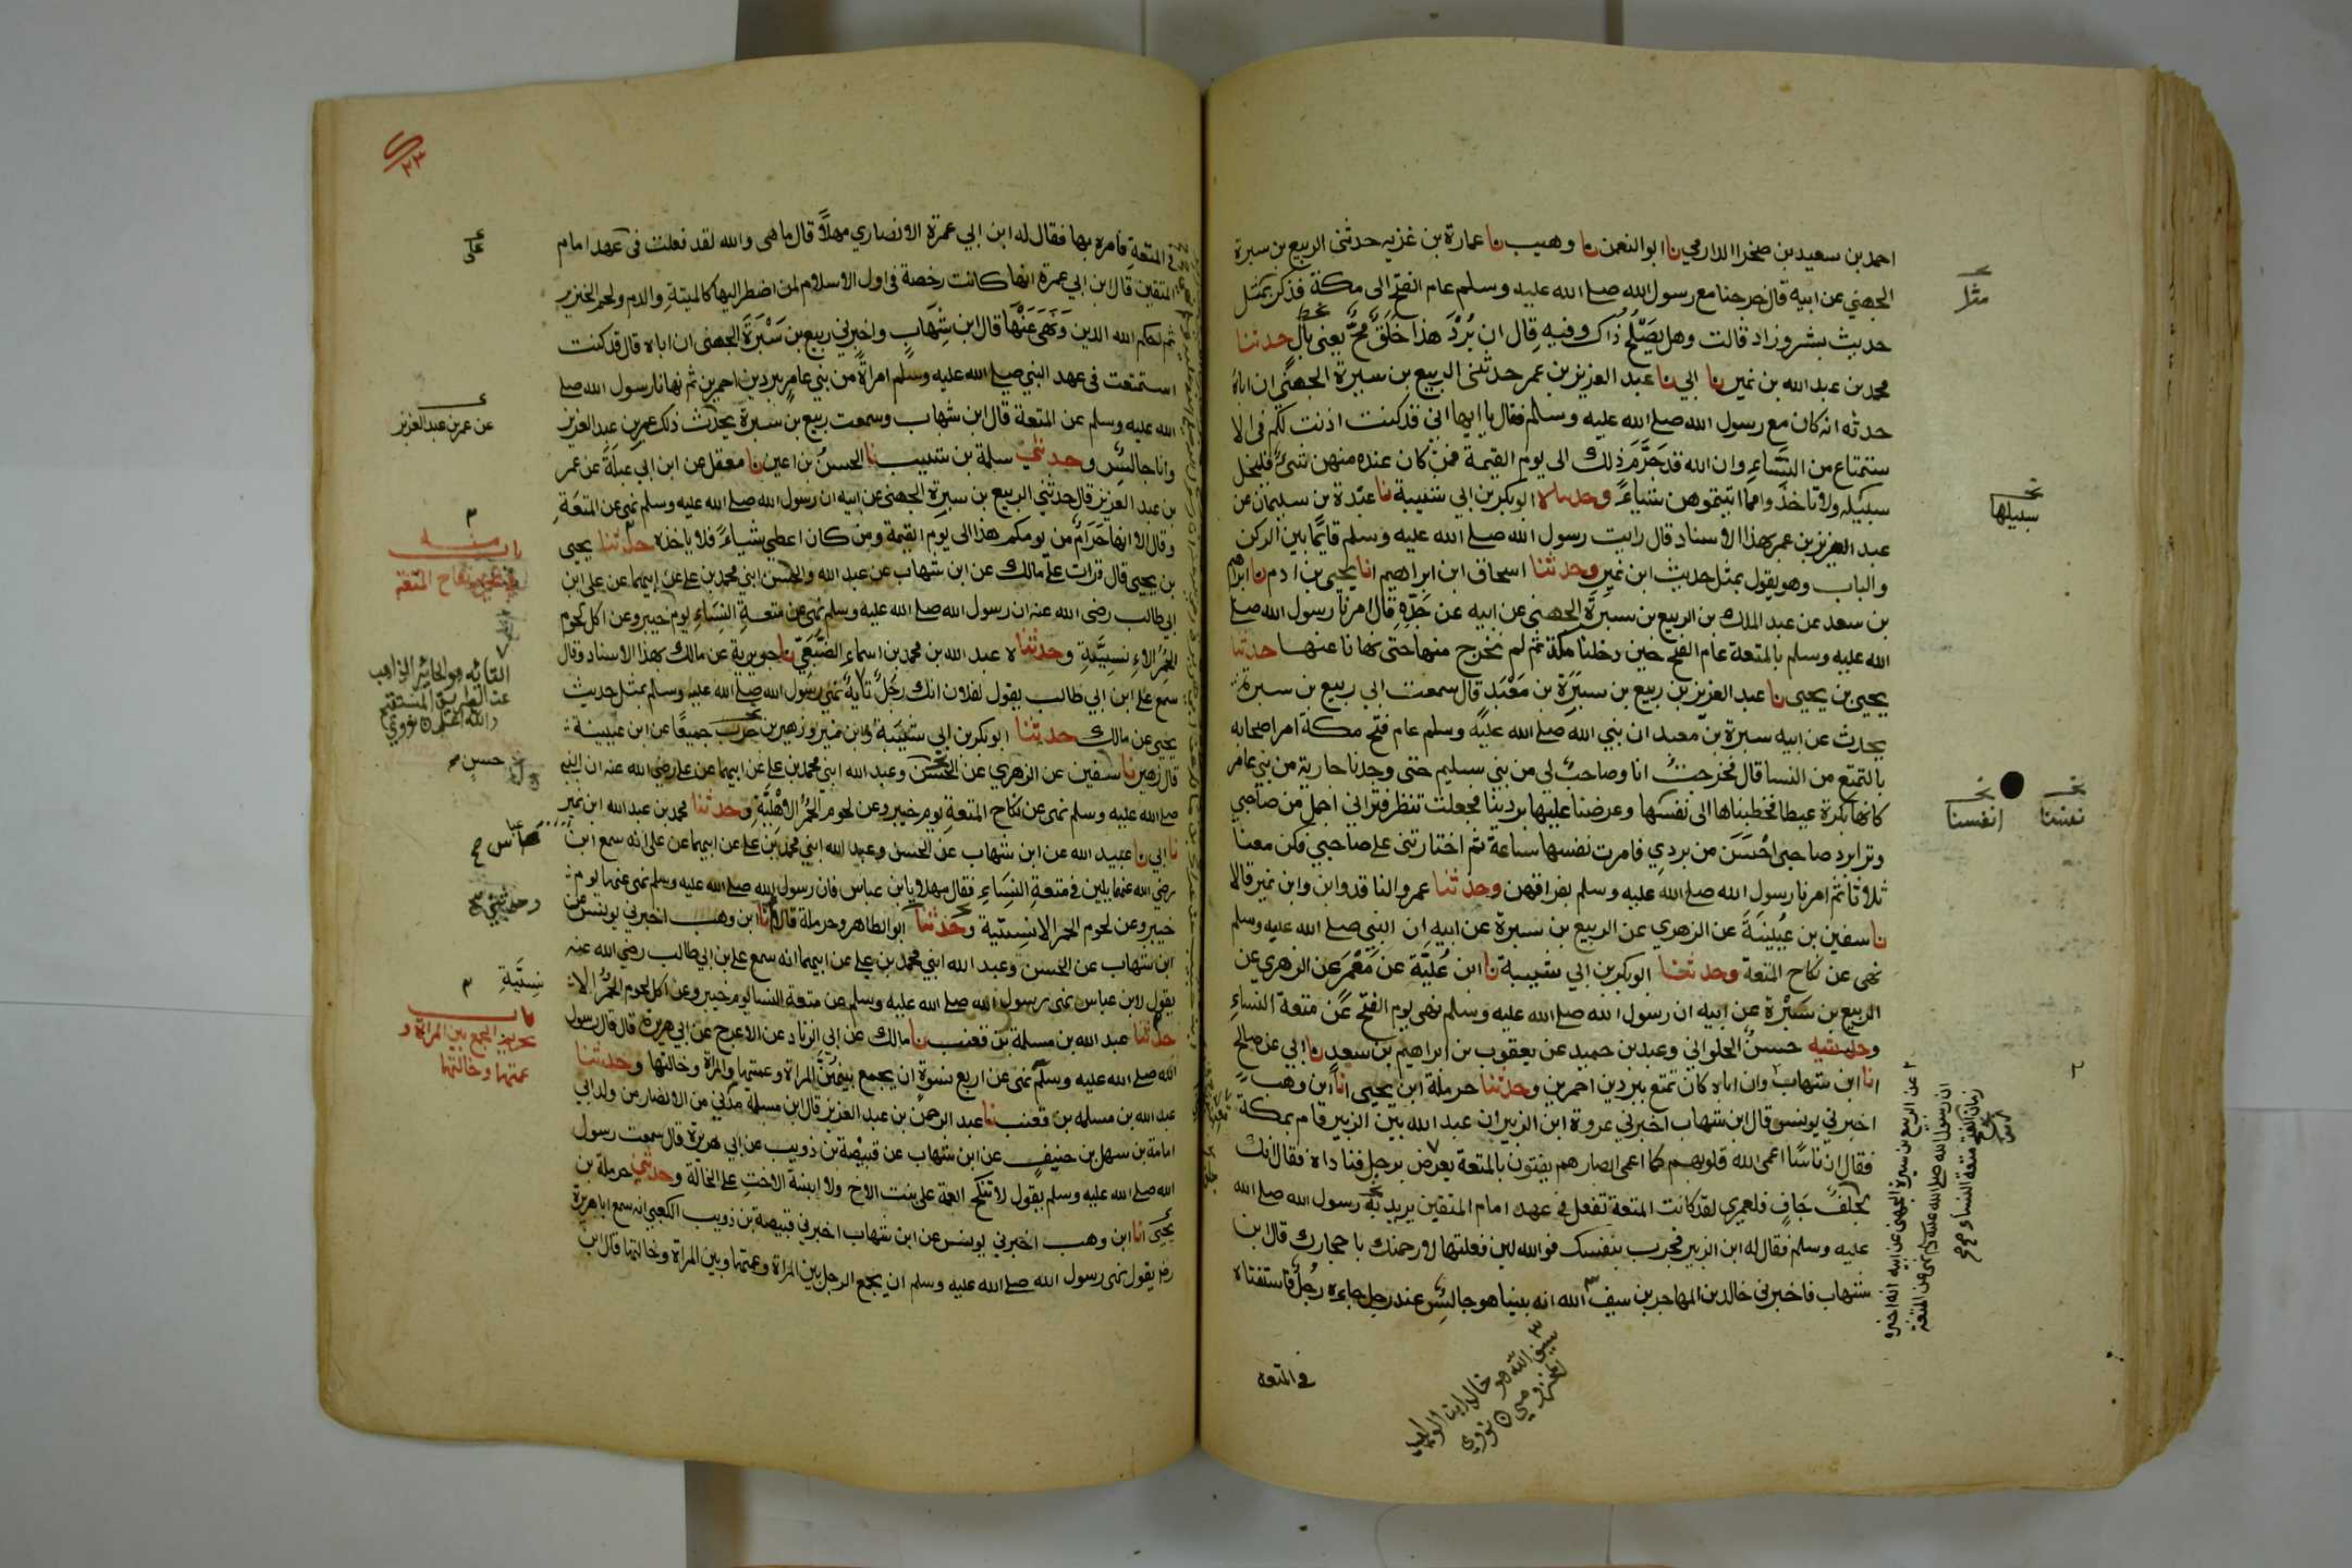 احمد بن سعيد بن صخر الدارمي نا ابو النعمن نا وهيب نا عمارة بن غزيه حدثنى الربيع بن سبرة
الجهني عن ابيه قال خرجنا مع رسول الله صلے الله عليه وسلم عام الفتح الى مكة فذكر بمثل
حديث بشر وزاد قالت وهل يَصْلُح ذاك وفيه قال ان بُرْدَ هذا خَلَقٌ مَحٌّ يعنى بالٍ حدثنا
محمد بن عبد الله بن نمير نا ابي نا عبد العزيز بن عمر حدثنى الربيع بن سبرة الجهني ان اباهُ
حدثه انه كان مع رسول الله صلے الله عليه وسلم فقال يا ايها اني قد كنت اذنت لكم فى الا
ستمتاع من النِّسَاءِ وان الله قد حَرَّمَ ذلك الى يوم القيمة فمن كان عنده منهن شئٌ فليخل
سبيله ولا تاخذوا مما اتيتموهن شياءً وحدثناه ابو بكر بن ابي شيبة نا عبدة بن سليمان عن
عبد العزيز بن عمر بهذا الاسناد قال رايت رسول الله صلے الله عليه وسلم قايمًا بين الركن
والباب وهو يقول بمثل حديث ابن نمير وحدثنا اسحاق ابن ابراهيم انا يحيى بن ادم نا ابراهيم
بن سعد عن عبد الملك بن الربيع بن سبرة الجهني عن ابيه عن جدّهِ قال امرنا رسول الله صلے
الله عليه وسلم بالمتعة عام الفتح حين دخلنا مكة ثم لم نخرج منها حتى نهانا عنها حدثنا
يحيى بن يحيى نا عبد العزيز بن ربيع بن سبرة بن مَعْبَد قال سمعت ابي ربيع بن سبرة
يحدث عن ابيه سبرة بن معبد ان نبي الله صلے الله عليه وسلم عام فتح مكة امر اصحابه
بالتمتع من النسا قال فخرجت انا وصاحب لي من بني سليم حتى وجدنا جارية من بني عامر
كانها بكرة عيطا فخطبناها الى نفسها وعرضنا عليها بردينا فجعلت تنظر فتراني اجمل من صاحبي
وترا برد صاحبى احْسَنَ من بردي فامرت نفسها ساعة ثم اختارتنى على صاحبي فكن معنا
ثلاثا ثم امرنا رسول الله صلے الله عليه وسلم بفراقهن وحدثنا عمرو الناقد وابن نمير قالا
نا سفين بن عُيَيْنَةَ عن الزهري عن الربيع بن سبرة عن ابيه ان النبي صلے الله عليه وسلم
نهى عن نكاح المتعة وحدثنا ابو بكر بن ابي شيبة نا ابن عُلَيّة عن مَعْمَر عن الزهري عن
الربيع بن سَبْرَة عن ابيه ان رسول الله صلے الله عليه وسلم نهى يوم الفتح عن متعة النساءِ
وحدثنيه حسنٌ الحلواني وعبد بن حميد عن يعقوب بن ابراهيم بن سعد نا ابي عن صالح
انا ابن شهاب وان اباه كان تمتع ببردين احمرين وحدثنا حرملة ابن يحيى انا ابن وهب
اخبرني يونس قال ابن شهاب اخبرني عروة ابن الزبير ان عبد الله بن الزبير قام بمكة
فقال ان ناسًا اعمى الله قلوبهم كما اعمى ابصارهم يفتون بالمتعة يعرض برجل فناداه فقال انك
لجلفٌ جَافٍ فلعمري لقد كانت المتعة تفعل في عهد امام المتقين يريد به رسول الله صلے الله
عليه وسلم فقال له ابن الزبير فجرب بنفسك فوالله لئن فعلتها لارجمنك باحجارك قال ابن
شهاب فاخبرني خالد بن المهاجر بن سيف الله انه بينا هو جالسٌ عند رجل جاءه رجُلٌ فاستفتاه
في المتعه
مثل
سبيلها
نفسنا
انفسنا
عن الربيع بن سبرة الجهني عن ابيه انه اخبره
ان رسول الله صلے الله عليه وسلم نهى عن المتعة
زمان الفتح متعة النساء صح
سيف الله هو خالد ابن الوليد
المخزومي نووي
٢٣
في المتعةِ فأمره بها فقال له ابن ابي عمرة الانصاري مهلًا قال ما هى والله لقد فعلت فى عهد امام
المتقين قال ابن ابي عمرة انها كانت رخصة فى اول الاسلام لمن اضطر اليها كالميتةِ والدم ولحم الخنزير
ثم احكم الله الدين وَنَهَى عَنْهَا قال ابن شِهَابٍ واخبرني ربيع بن سَبْرَةَ الجهنى ان اباه قال قد كنت
استمتعت فى عهد النبي صلے الله عليه وسلم امراةً من بني عامرٍ ببردين احمرين ثم نهانا رسول الله صلے
الله عليه وسلم عن المتعة قال ابن شهاب وسمعت ربيع بن سبرة يحدث ذلك عمر بن عبد العزيز
وانا جالسٌ وحدثنى سلمة بن شبيب نا الحسنُ بن اعين نا معقل عن ابن ابي عبلة عن عمر
بن عبد العزيز قال حدثني الربيع بن سبرة الجهني عن ابيه ان رسول الله صلے الله عليه وسلم نهى عن المتعَةِ
وقال الا انها حَرَامٌ من يومكم هذا الى يوم القيمة ومن كان اعطى شياءً فلا ياخذه حدثنا يحيى
بن يحيى قال قرات على مالك عن ابن شهاب عن عبد الله والحسن ابني محمد بن علے عن ابيهما عن على ابن
ابي طالب رضى الله عنه ان رسول الله صلے الله عليه وسلم نهى عن متعة النِسَاءِ يوم خيبر وعن اكل لحوم
الحُمُرِ الانسِيَّةِ وحدثناه عبد الله بن محمد بن اسماء الضُّبَعِيُّ نا جويرية عن مالك بهذا الاسناد وقال
سمع علے ابن ابي طالب يقول لفلان انك رجُلٌ تايهٌ نهى رسول الله صلے الله عليه وسلم بمثل حديث
يحيى عن مالك حدثنا ابو بكر بن ابي شيبة وابن نمير وزهير بن حرب جميعًا عن ابن عيينة
قال زهير نا سفين عن الزهري عن الحسن وعبد الله ابني محمد بن علے عن ابيهما عن على رضي الله عنه ان النبي
صلے الله عليه وسلم نهى عن نكاح المتعةِ يوم خيبر وعن لحوم الحُمُر الاهْلِيَّةِ وحدثنا محمد بن عبد الله ابن نمير
نا ابي نا عبيد الله عن ابن شهاب عن الحسن وعبد الله ابني محمد بن علے عن ابيهما عن على انه سمع ابن
رضي الله عنهما يلين في متعةِ النِسَاءِ فقال مهلا يا بن عباس فان رسول الله صلے الله عليه وسلم نهى عنها يوم
خيبر وعن لحوم الحمر الانسِيَّة وحدثنا ابو الطاهر وحرملة قالا انا ابن وهب اخبرني يونس عن
ابن شهاب عن الحسن وعبد الله ابني محمد بن علے عن ابيهما انه سمع على بن ابي طالب رضي الله عنه
يقول لابن عباس نهى رسول الله صلے الله عليه وسلم عن متعة النسا يوم خيبر وعن اكل لحوم الحُمُر الا
حدثنا عبد الله بن مسلمة بن قعنب نا مالك عن ابى الزناد عن الاعرج عن ابي هريرة قال قال رسول
الله صلے الله عليه وسلم نهى عن اربع نسوة ان يجمع بينهن المراة وعمتها والمراة وخالتها وحدثنا
عبد الله بن مسلمه بن قعنب نا عبد الرحمن بن عبد العزيز قال ابن مسلمة مدني من الانصار من ولد ابي
امامة بن سهل بن حنيفٍ عن ابن شهاب عن قبيصة بن ذويب عن ابي هريرة قال سمعت رسول
الله صلے الله عليه وسلم يقول لا تنكح العمة على بنت الاخ ولا ابنة الاختِ علے الخالة وحدثني حرملة بن
يحيى انا ابن وهب اخبرني يونس عن ابن شهاب اخبرني قبيصة بن ذويب الكعبي انه سمع اباهريرة
رضـ يقول نهى رسول الله صلے الله عليه وسلم ان يجمع الرجل بين المراة وعمتها وبين المراة وخالتها قال ابن
على
عن عمر بن عبد العزيز
باب منه
نكاح المتعة
التايه هو الحاير الذاهب
عن الطريق المستقيم
والله اعلم نووي
حسن
عباس صح
وحدثني صح
نسِيَّةِ
باب
تحريم الجمع بين المراة و
عمتها وخالتها